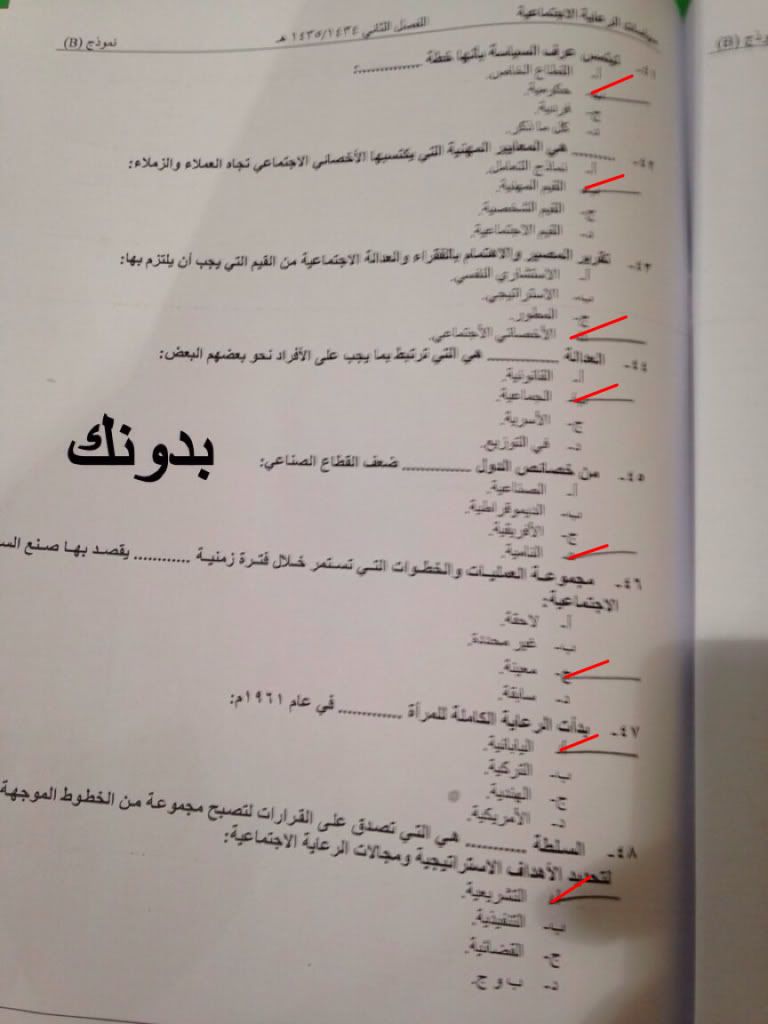 سياسات الرعاية الاجتماعية الفصل الثاني ١٤٣٥/١٤٣٤ هـ نموذج (B)
٤١- تيتمس عرف السياسة بأنها خطة ..............:
أ- القطاع الخاص.
ب- حكومية.
ج- فردية.
د- كل ما ذكر.
٤٢- ......... هي المعايير المهنية التي يكتسبها الأخصائي الاجتماعي تجاه العملاء والزملاء:
أ- نماذج التعامل.
ب- القيم المهنية.
ج- القيم الشخصية.
د- القيم الاجتماعية.
٤٣- تقرير المصير والاهتمام بالفقراء والعدالة الاجتماعية من القيم التي يجب أن يلتزم بها:
أ- الاستشاري النفسي.
ب- الاستراتيجي.
ج- المطور.
الأخصائي الاجتماعي.
٤٤- العدالة .............. هي التي ترتبط بما يجب على الأفراد نحو بعضهم البعض:
أ- القانونية.
ب- الجماعية.
ج- الأسرية.
د- في التوزيع.
بدونك
٤٥- من خصائص الدول .............. ضعف القطاع الصناعي:
أ- الصناعية.
ب- الديموقراطية.
ج- الأفريقية.
د- النامية.
٤٦- مجموعة العمليات والخطوات التي تستمر خلال فترة زمنية ............ يقصد بها صنع
الاجتماعية:
أ- لاحقة.
ب- غير محددة.
ج- معينة.
د- سابقة.
٤٧- بدأت الرعاية الكاملة للمرأة ............. في عام ١٩٦١م:
أ- اليابانية.
ب- التركية.
ج- الهندية.
د- الأمريكية.
٤٨- السلطة ............ هي التي تصدق على القرارات لتصبح مجموعة من الخطوط الموجهة
لتحديد الأهداف الاستراتيجية ومجالات الرعاية الاجتماعية:
أ- التشريعية.
ب- التنفيذية.
ج- القضائية.
د- ب و ج.